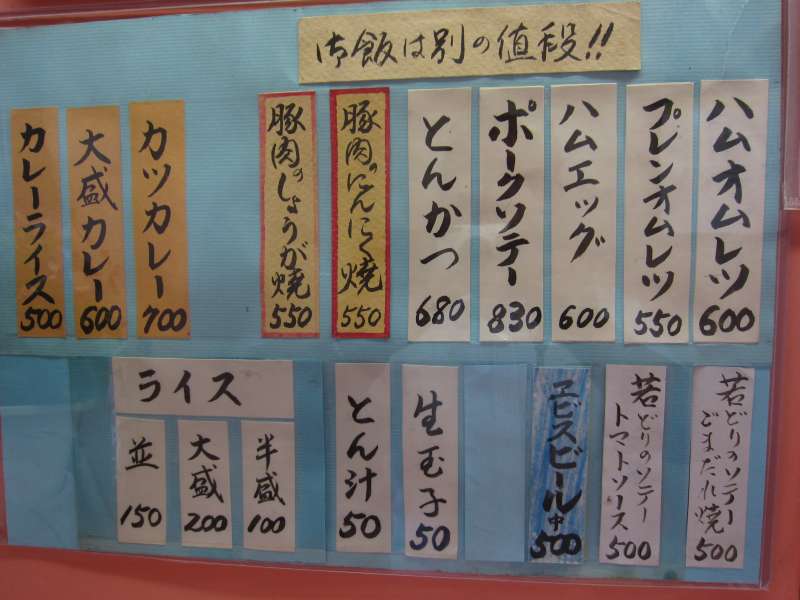 御飯は別の値段!!
ハムオムレツ
600
プレンオムレツ
550
ハムエッグ
600
ポークソテー
830
とんかつ
680
豚肉のにんにく焼
550
豚肉のしょうが焼
550
カツカレー
700
大盛カレー
600
カレーライス
500
若どりのソテー
ごまだれ焼
500
若どりのソテー
トマトソース
500
ヱビスビール中
500
生玉子
50
とん汁
50
ライス
半盛
100
大盛
200
並
150